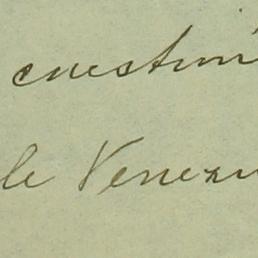 cuestión
de Venezu